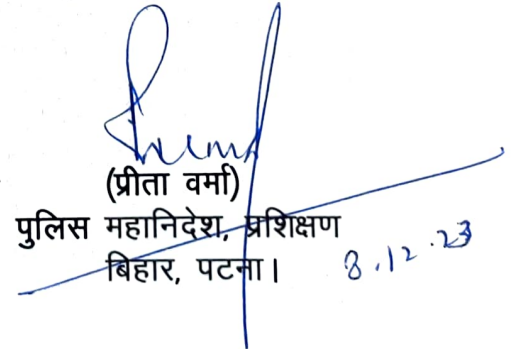 (प्रीता वर्मा)
पुलिस महानिदेश, प्रशिक्षण
बिहार, पटना।
8.12.23